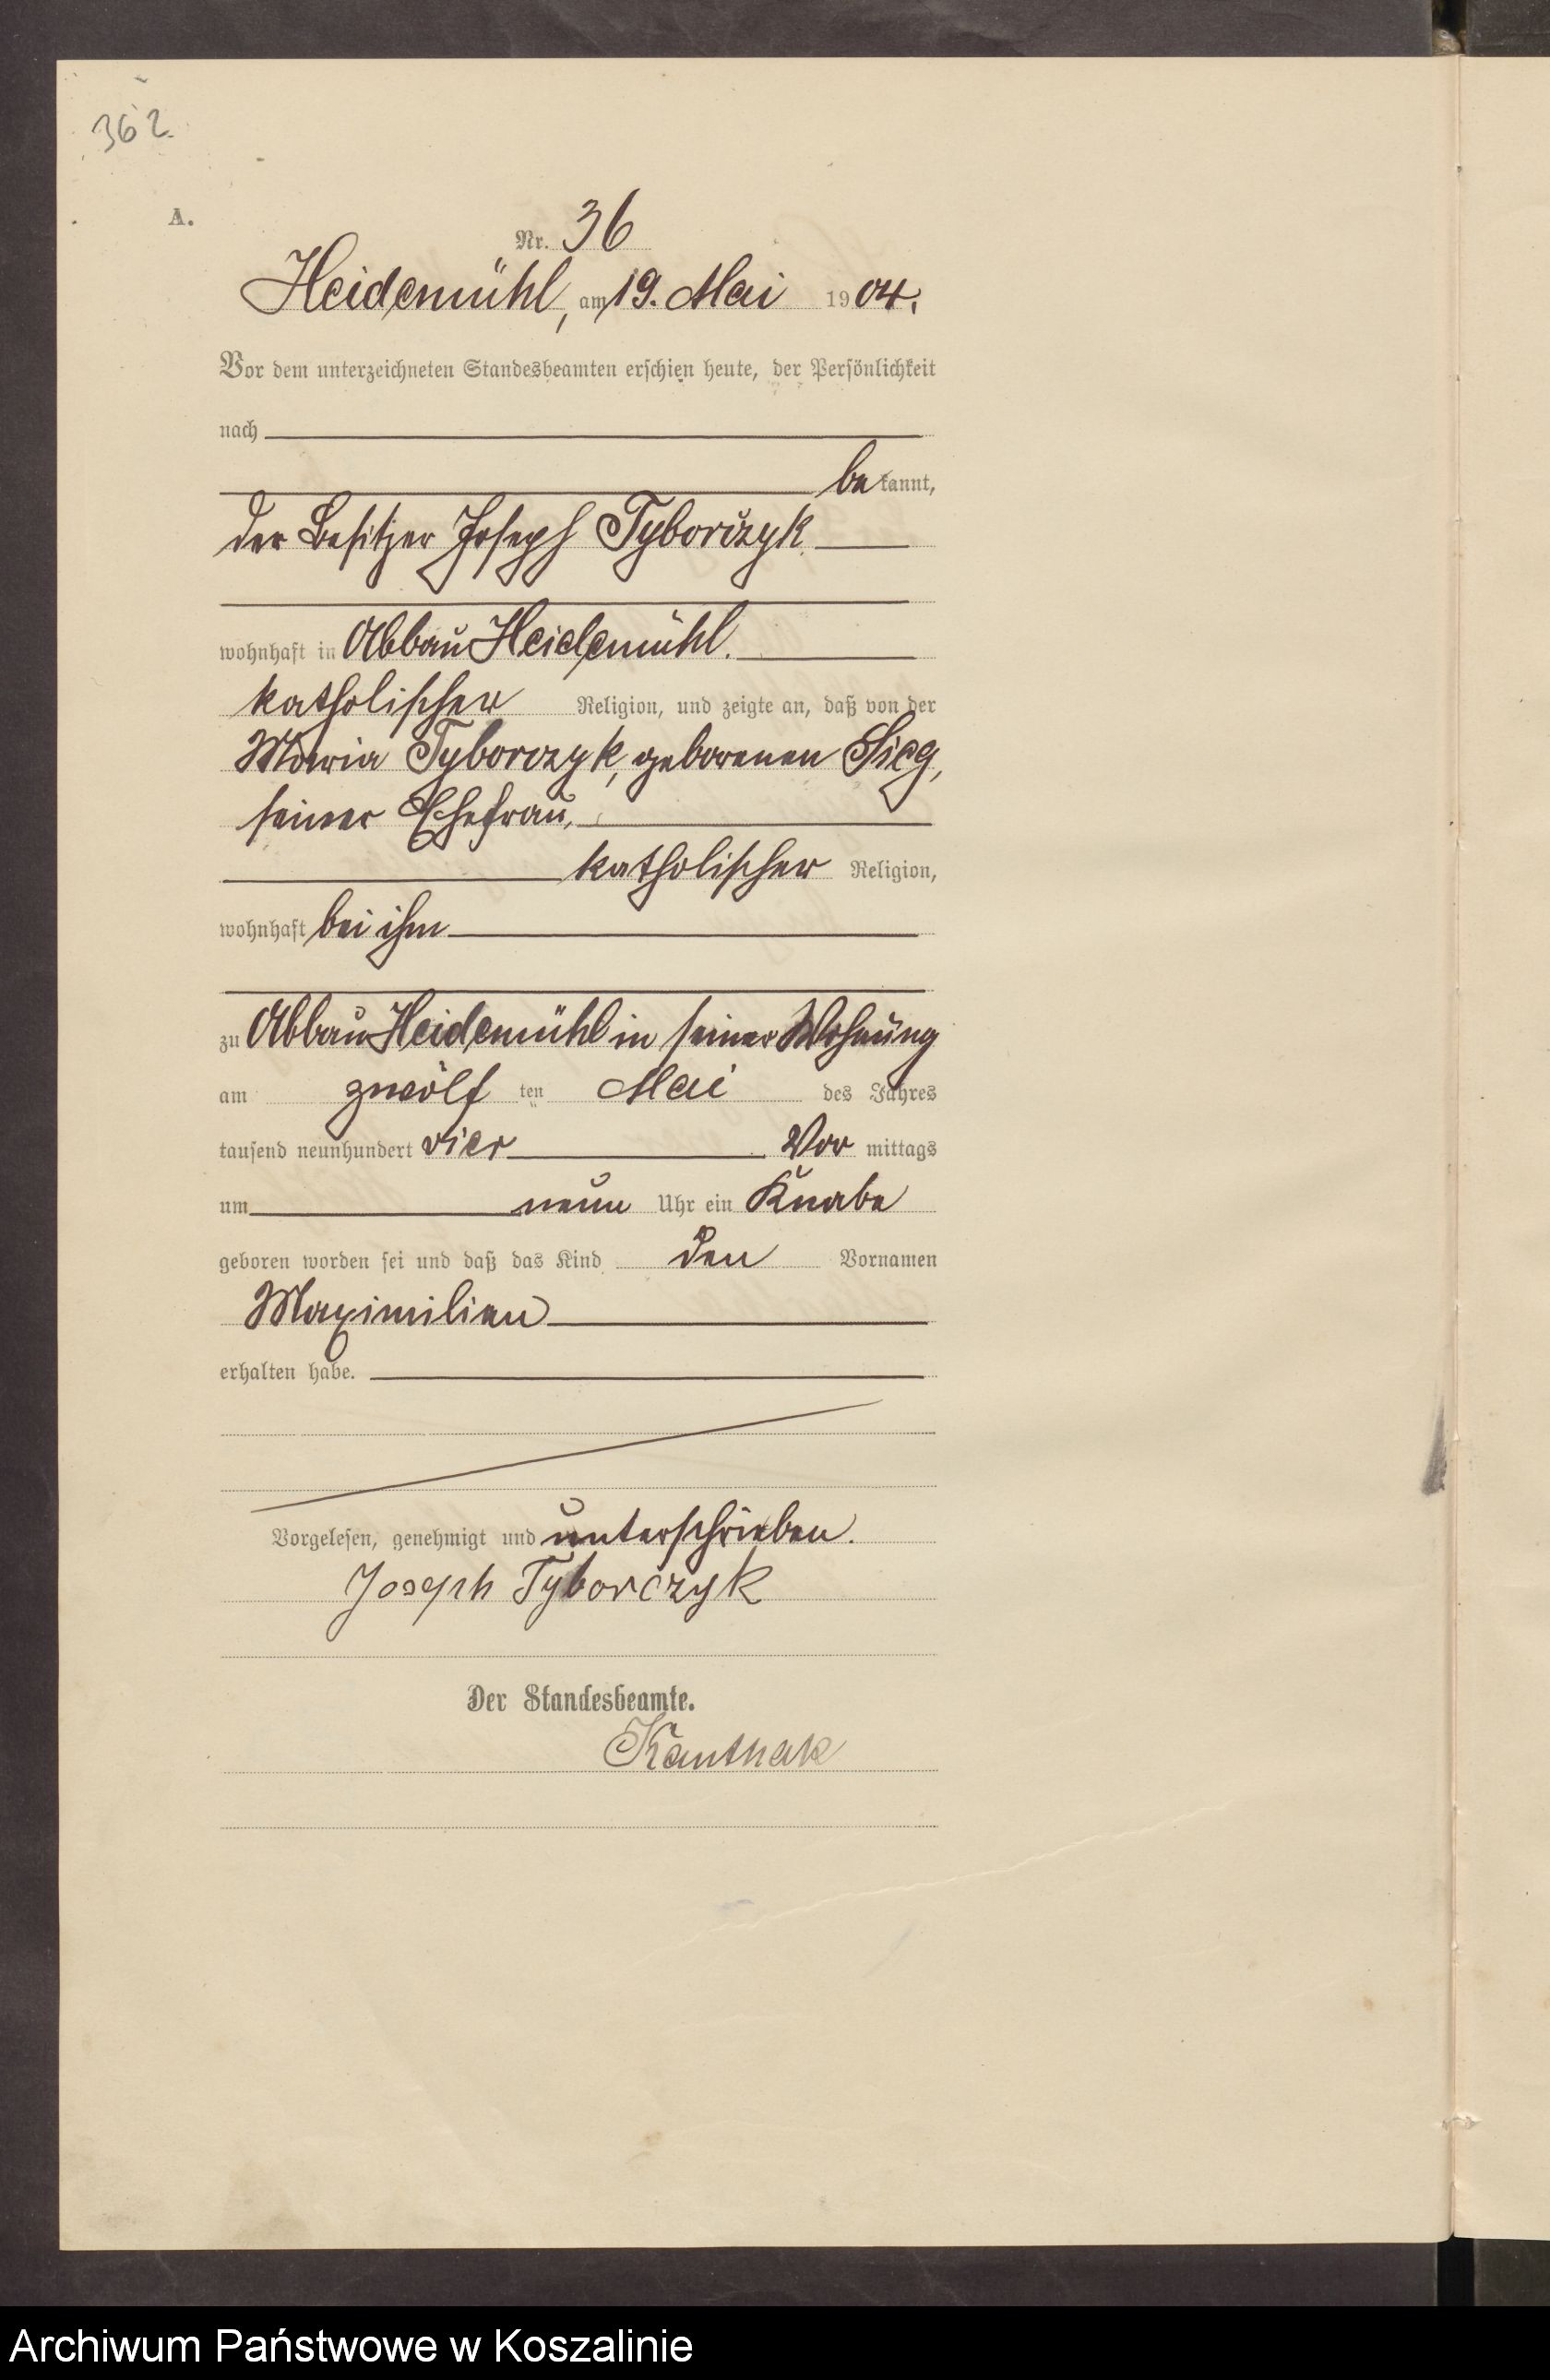 362
A.
Nr. 36
Heidemühl, am 19. Mai 1904.
Vor dem unterzeichneten Standesbeamten erschien heute, der Persönlichkeit
nach
bekannt,
der Besitzer Joseph Tyborczyk
wohnhaft in Abbau Heidemühl.
katholischer Religion, und zeigte an, daß von der
Maria Tyborczyk, geborenen Sieg,
seiner Ehefrau,
katholischer Religion,
wohnhaft bei ihm
zu Abbau Heidemühl in seiner Wohnung
am zwölften Mai des Jahres
tausend neunhundert vier Vormittags
um neun Uhr ein Knabe
geboren worden sei und daß das Kind den Vornamen
Maximilian
erhalten habe.
Vorgelesen, genehmigt und unterschrieben.
Joseph Tyborczyk
Der Standesbeamte.
Kanthak
Archiwum Państwowe w Koszalinie